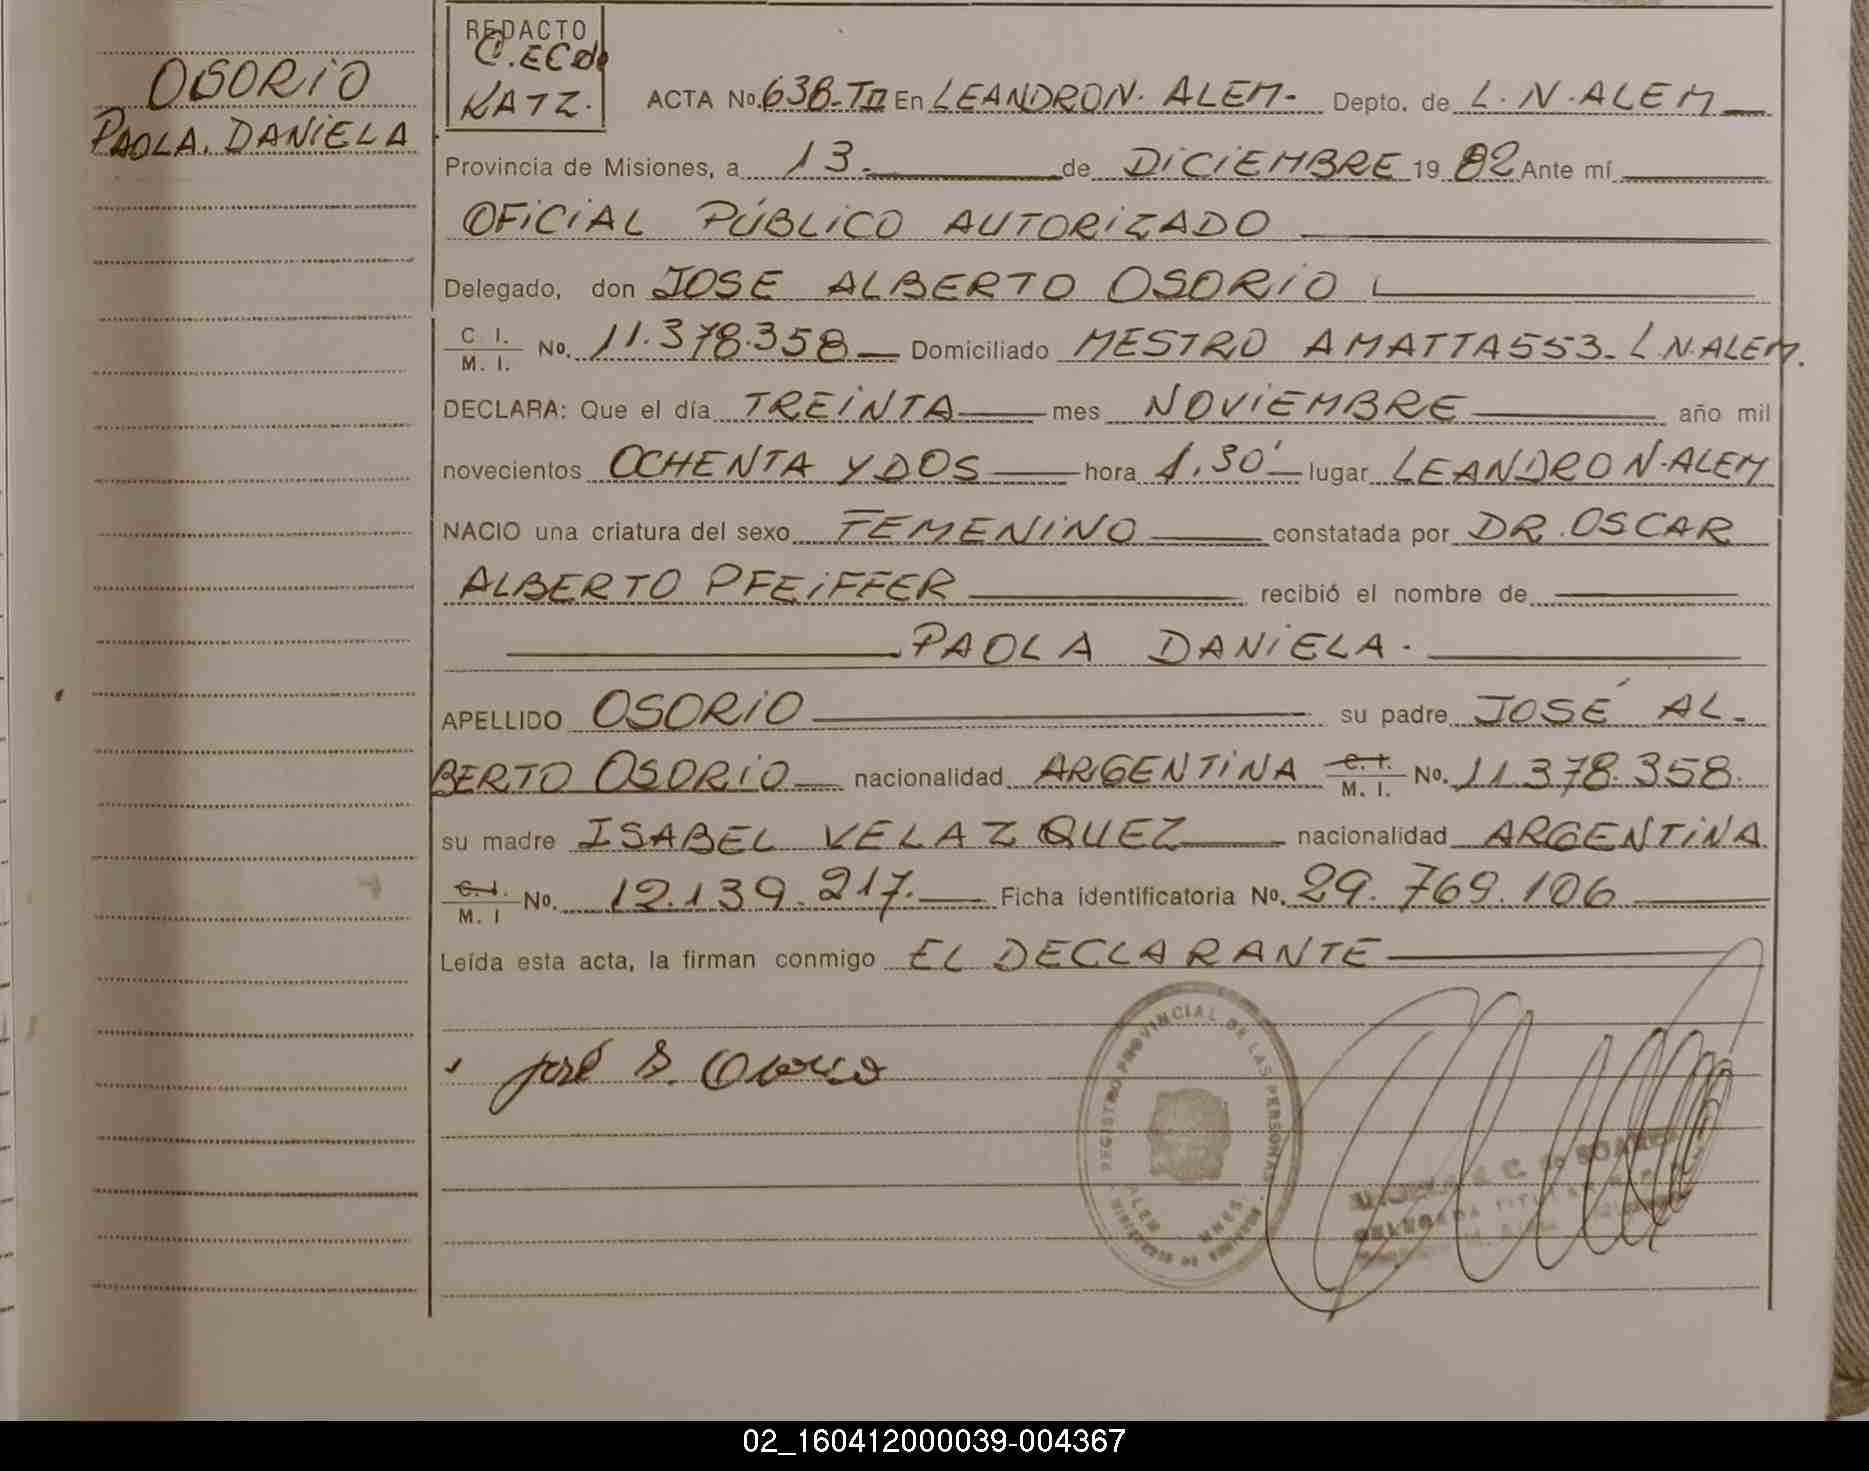 OSORIO
PAOLA. DANIELA
REDACTO
C. EC de
KATZ.
ACTA No. 638-TII En LEANDRO N. ALEM- Depto. de L. N. ALEM
Provincia de Misiones, a 13 de DICIEMBRE 19 82 Ante mí
OFICIAL PÚBLICO AUTORIZADO
Delegado, don JOSE ALBERTO OSORIO
C. I. / M. I. No. 11.378.358 Domiciliado MESTRO AMATTA 553- L.N.ALEM.
DECLARA: Que el día TREINTA mes NOVIEMBRE año mil
novecientos OCHENTA Y DOS hora 1.30' lugar LEANDRO N. ALEM
NACIO una criatura del sexo FEMENINO constatada por DR. OSCAR
ALBERTO PFEIFFER recibió el nombre de
PAOLA DANIELA.
APELLIDO OSORIO su padre JOSÉ AL-
BERTO OSORIO nacionalidad ARGENTINA C. I. / M. I. No. 11.378.358.
su madre ISABEL VELAZQUEZ nacionalidad ARGENTINA
C. I. / M. I No. 12.139.217. Ficha identificatoria No. 29.769.106
Leída esta acta, la firman conmigo EL DECLARANTE
REGISTRO PROVINCIAL DE LAS PERSONAS
ALEM MNES.
José A. Osorio
C. de SOAREZ
DELEGADA TITULAR
02_160412000039-004367